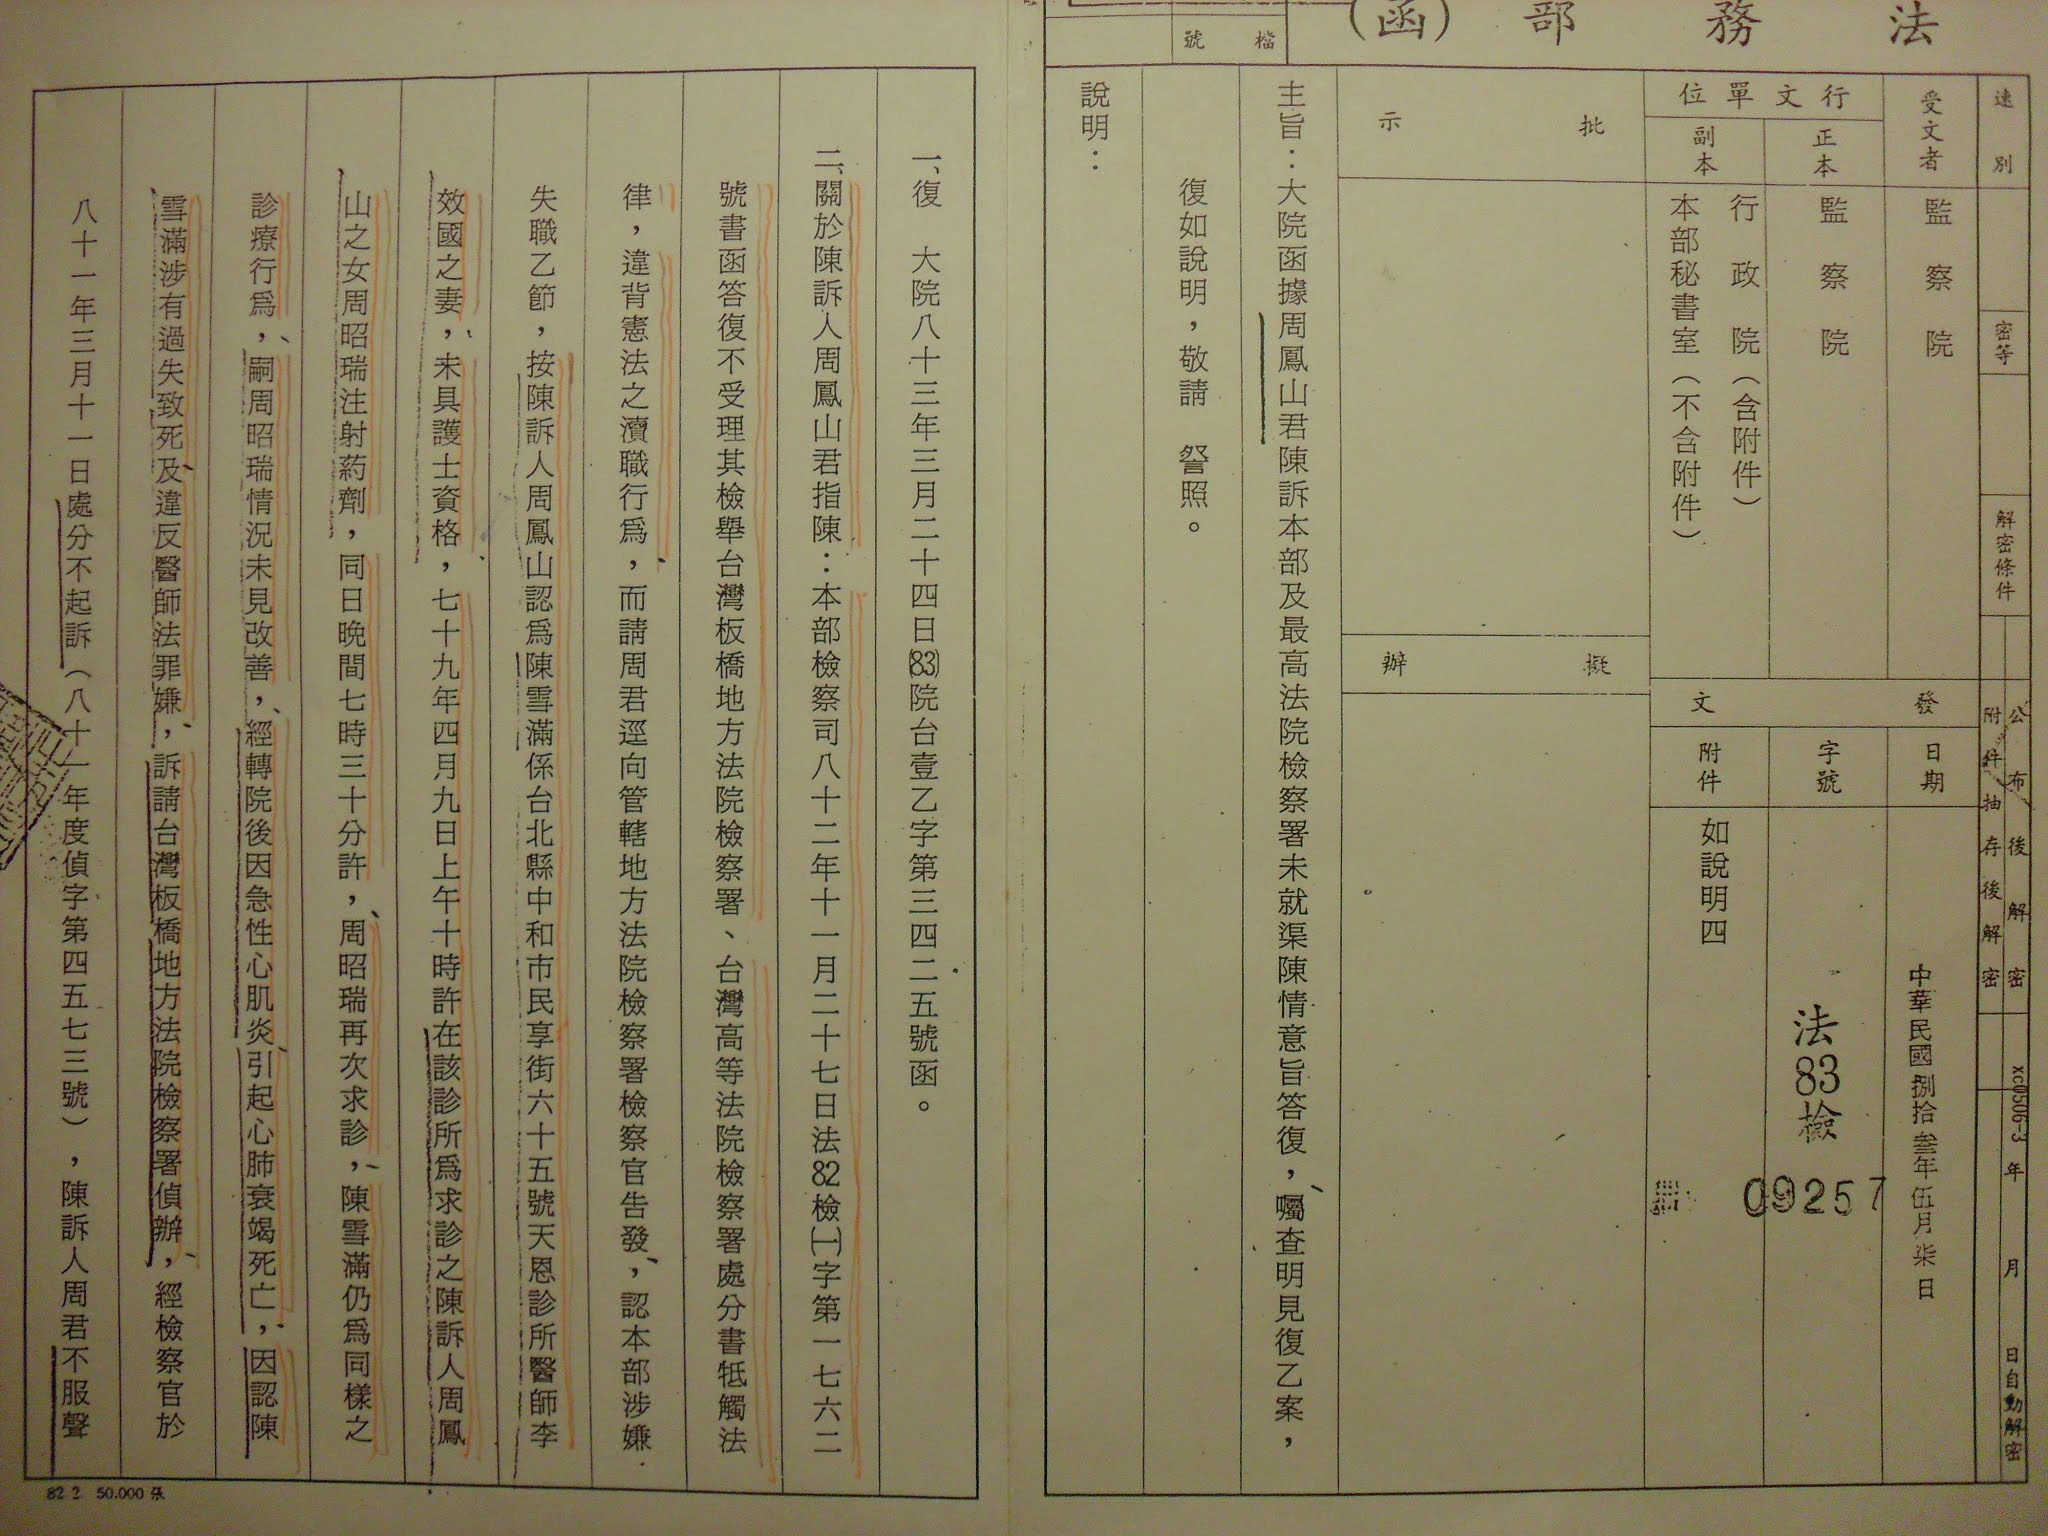 法務部（函）
檔號
速別
密等
解密條件
公布後解密
附件抽存後解密
xc0506-3年 月 日自動解密
受文者
監察院
行文單位
正本
監察院
副本
行政院（含附件）
本部秘書室（不含附件）
發文
日期
中華民國捌拾叁年伍月柒日
字號
法83檢
09257
附件
如說明四
批示
擬辦
主旨：大院函據周鳳山君陳訴本部及最高法院檢察署未就渠陳情意旨答復，囑查明見復乙案，
復如說明，敬請 詧照。
說明：
一、復 大院八十三年三月二十四日(83)院台壹乙字第三四二五號函。
二、關於陳訴人周鳳山君指陳：本部檢察司八十二年十一月二十七日法82檢(一)字第一七六二
號書函答復不受理其檢舉台灣板橋地方法院檢察署、台灣高等法院檢察署處分書牴觸法
律，違背憲法之瀆職行為，而請周君逕向管轄地方法院檢察署檢察官告發，認本部涉嫌
失職乙節，按陳訴人周鳳山認為陳雪滿係台北縣中和市民享街六十五號天恩診所醫師李
效國之妻，未具護士資格，七十九年四月九日上午十時許在該診所為求診之陳訴人周鳳
山之女周昭瑞注射葯劑，同日晚間七時三十分許，周昭瑞再次求診，陳雪滿仍為同樣之
診療行為，嗣周昭瑞情況未見改善，經轉院後因急性心肌炎引起心肺衰竭死亡，因認陳
雪滿涉有過失致死及違反醫師法罪嫌，訴請台灣板橋地方法院檢察署偵辦，經檢察官於
八十一年三月十一日處分不起訴（八十一年度偵字第四五七三號），陳訴人周君不服聲
82 2 50.000張